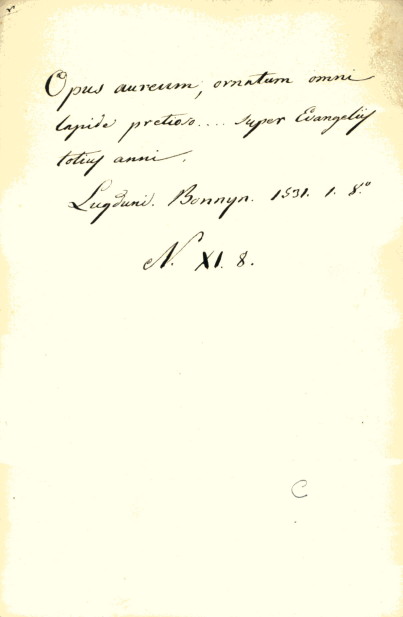 Opus aureum, ornatum omni
lapide pretioso.... super Evangeliis
totius anni.
Lugduni. Bonnyn. 1531. 1. 8.º
N. XI. 8.
C